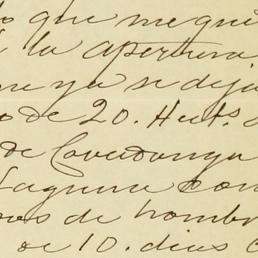 que me qui
a la apertura
ya se dej
de 20. Hect.s
de Covadonga
Laguna con
de hombr
de 10. dias